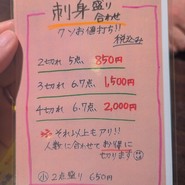 刺身盛り
合わせ
クソお値打ち!!
税込み
2切れ 5点 850円
3切れ 6.7点 1,500円
4切れ 6.7点 2,000円
それ以上もアリ!!
人数に合わせてお得に
切ります
小 2点盛り 650円